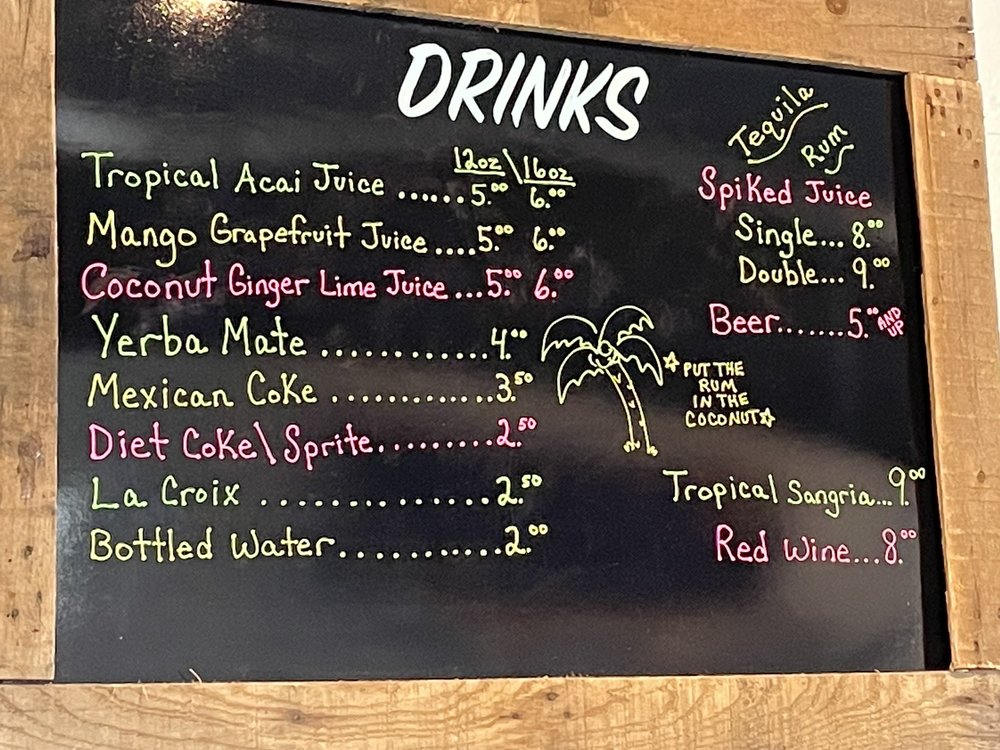 DRINKS
12oz\16oz
Tropical Acai Juice ...... 5.00 6.00
Mango Grapefruit Juice .... 5.00 6.00
Coconut Ginger Lime Juice ... 5.00 6.00
Yerba Mate ............. 4.00
Mexican Coke ............. 3.50
Diet Coke\Sprite......... 2.50
La Croix .............. 2.50
Bottled Water........... 2.00
Tequila
Rum
Spiked Juice
Single... 8.00
Double... 9.00
Beer....... 5.00 AND UP
PUT THE
RUM
IN THE
COCONUT
Tropical Sangria... 9.00
Red Wine... 8.00